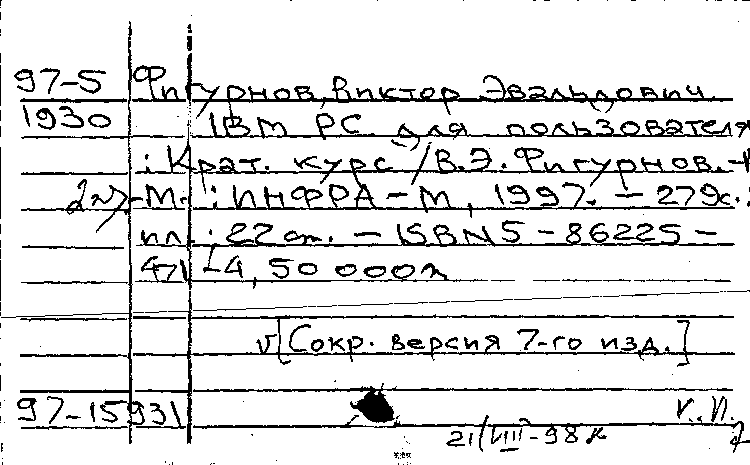 97-5 Фигурнов, Виктор Эвальдович
1930 IBM PC для пользователя
: Крат. курс / В.Э. Фигурнов. -
М. : ИНФРА-М, 1997. - 279с. :
ил. ; 22 cm. - ISBN 5-86225-
471-4, 50 000
[Сокр. версия 7-го изд.]
97-15931
21/VIII-98